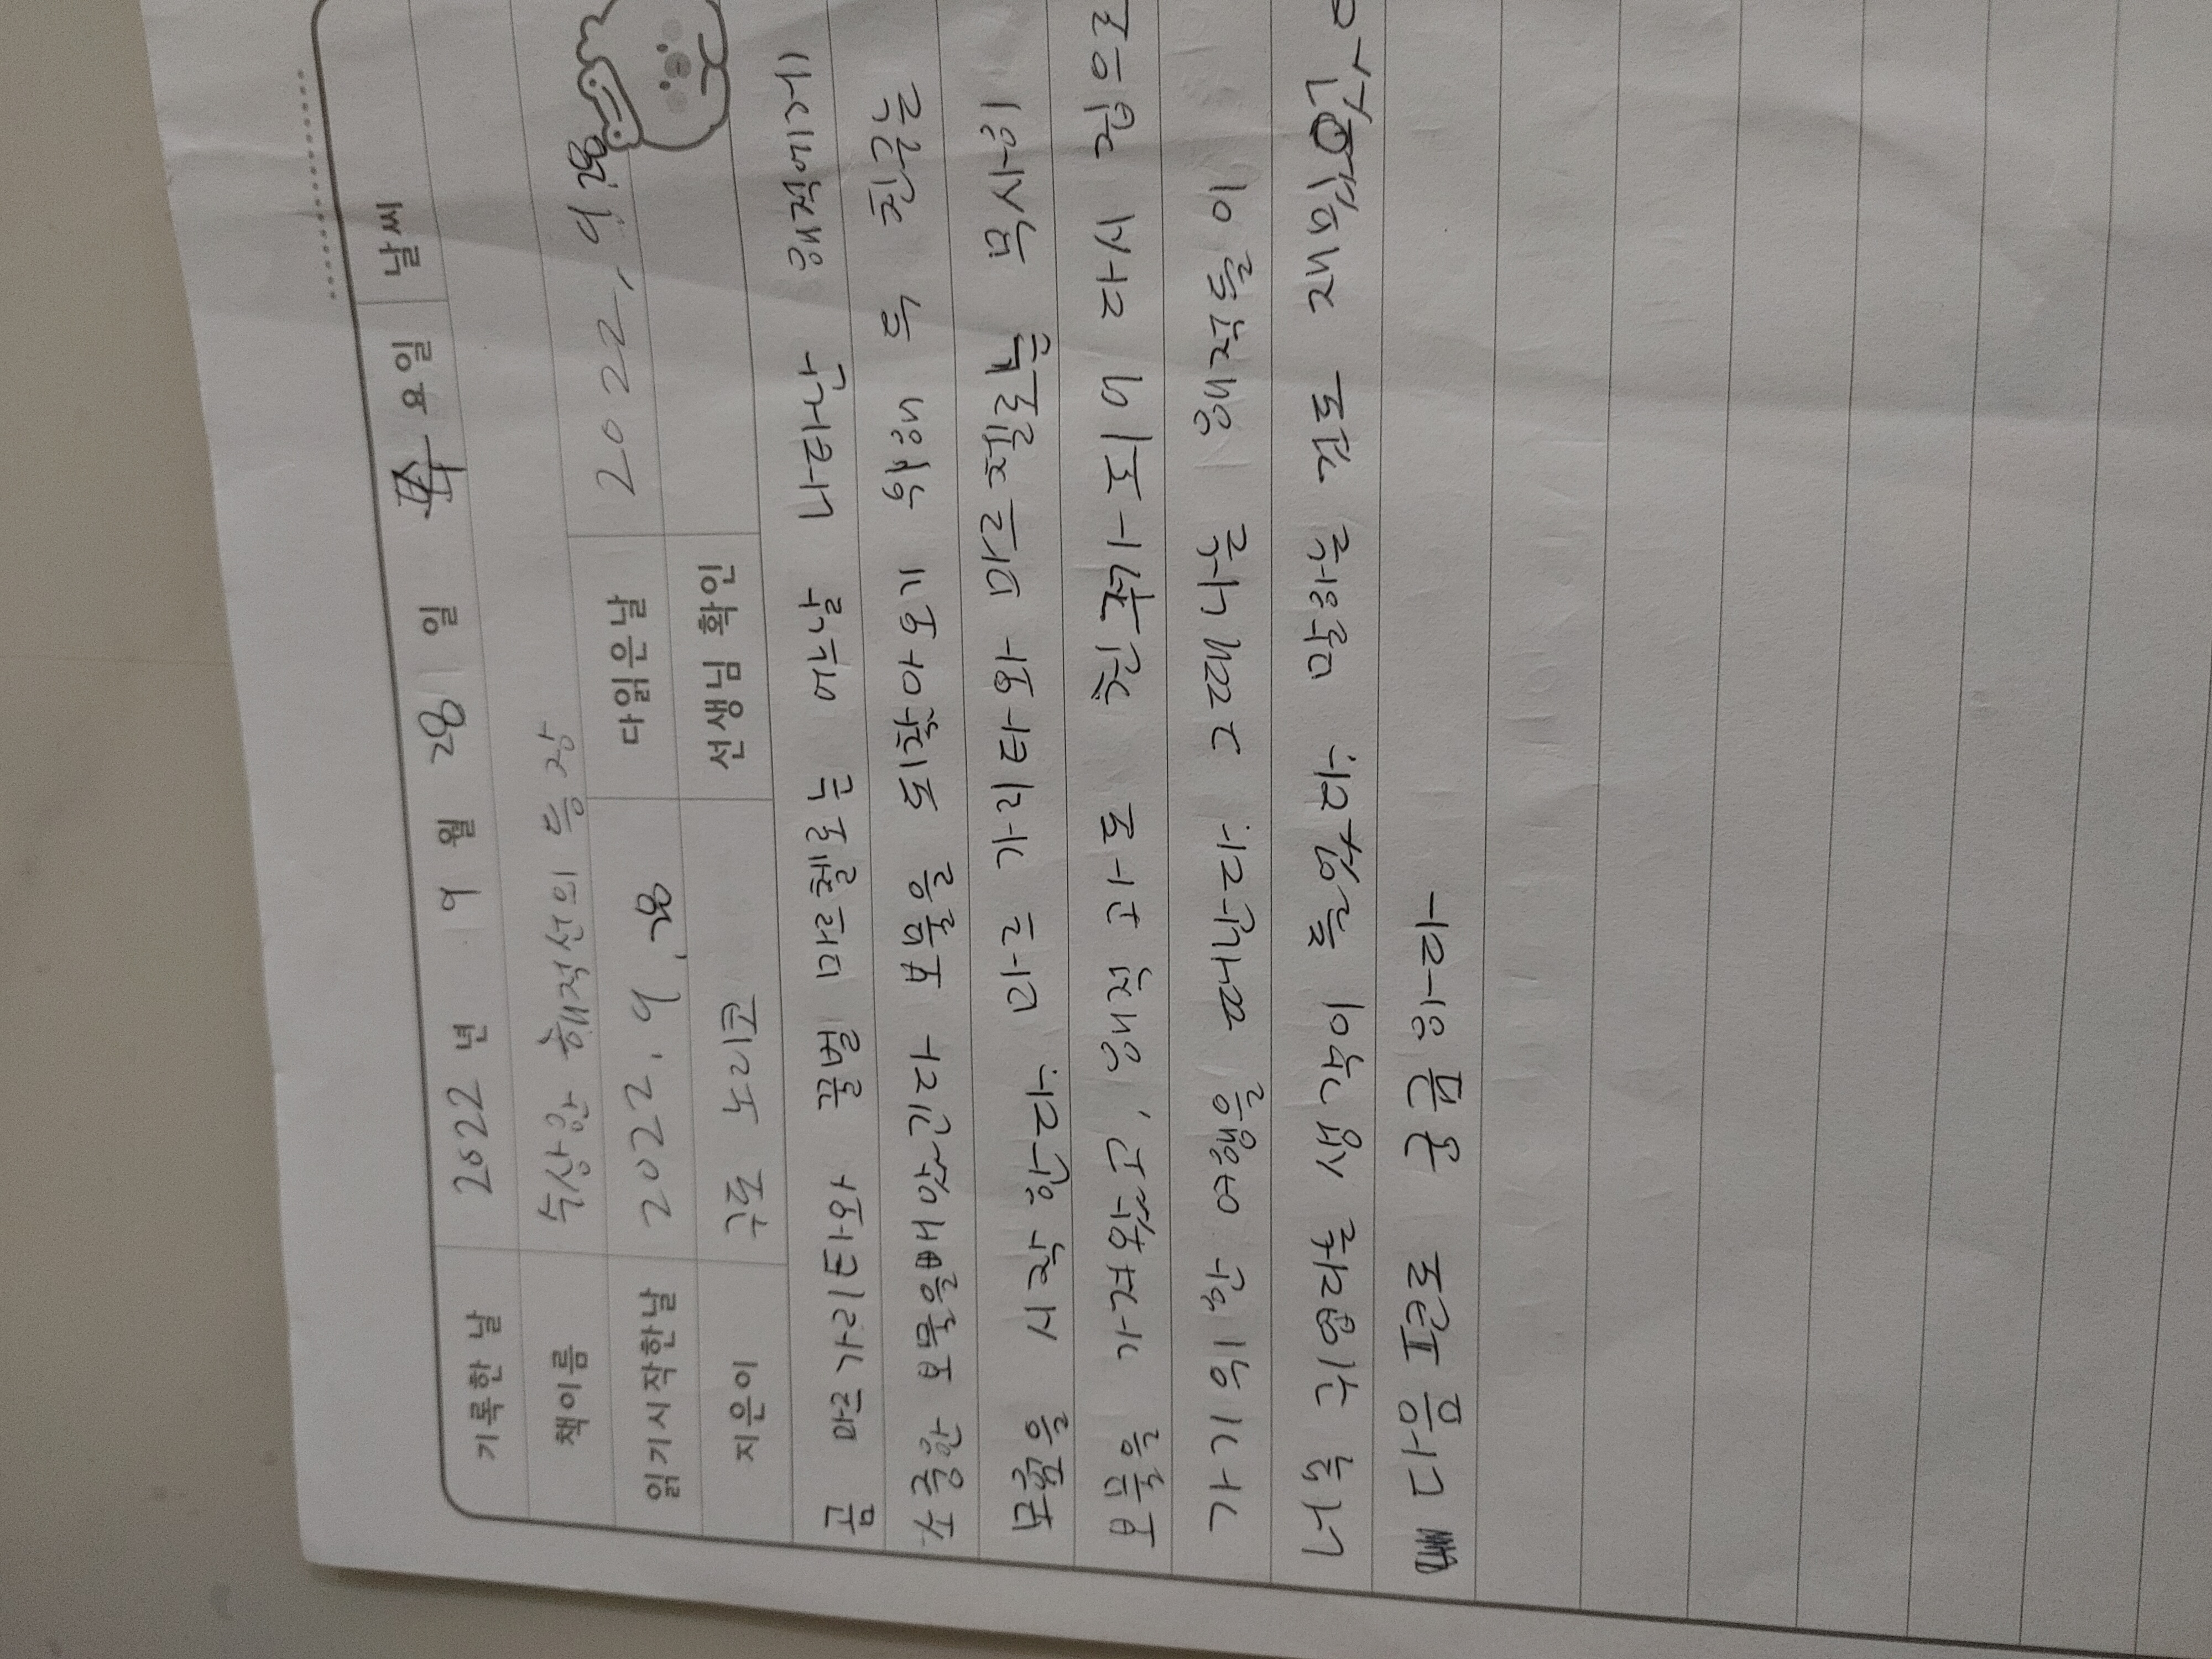 기록한 날 2022 년 9 월 28 일 요요일 날씨
책이름 수상한 해적선의 등장
읽기시작한날 2022. 9 .28 다읽은날 2022, 9.28
지은이 구도 노리코 선생님 확인
곰 마르가리타와 꿀벌 마르첼로는 어느날 나타난 해적에게
소중한 보물을빼앗긴다 보물을 되찾아오기 위해 두 친구는
모험을 시작한다. 마르가리타와 마르첼로는 무사히
보물을 가져왔고, 해적과도 친구가되어 다시 집으로
가기위한 여행을 떠난다. 그때나는 해적들이
너무 귀엽다는 생각이 들었다. 말하는 것도
다음편도 궁금하다